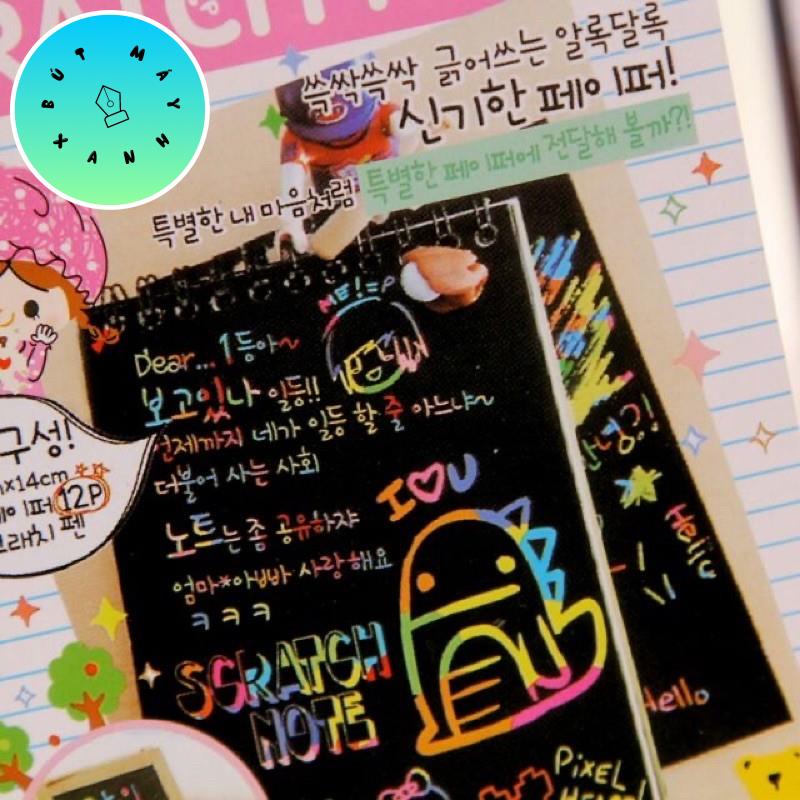 BÚT MÁY XANH
쓱싹쓱싹 긁어쓰는 알록달록
신기한 페이퍼!
특별한 내 마음처럼 특별한 페이퍼에 전달해 볼까?!
ME!=P
Dear... 1등아~
보고있나 일등!!
언제까지 네가 일등 할 줄 아느냐~
더불어 사는 사회
노트는 좀 공유하쟈
엄마*아빠 사랑해요
ㅋㅋㅋ
I♡U
SCRATCH
NOTE
PiXEL
안녕?!
Hello
Hello
구성!
x14cm
12P
펜